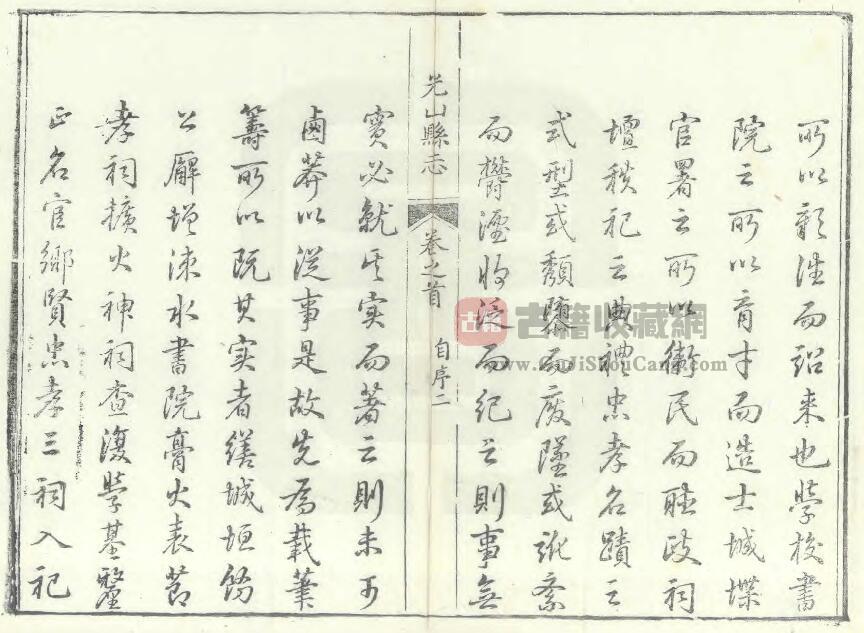 所以彰往而詔来也學校書
院之所以育才而造士城堞
官署之所以衛民而聽政祠
壇秩祀之典禮忠孝名蹟之
式型或頽隳而廢墜或訛紊
而欝湮収泛而紀之則事無
光山縣志 卷之首 自序二
實必就其实而著之則未可
鹵莽以從事是故先為載筆
籌所以既其实者繕城垣飭
公廨增涑水書院膏火表節
孝祠擴火神祠查復學基釐
正名宦鄉賢忠孝三祠入祀
古籍 古籍收藏網
www.GuJiShouCang.com